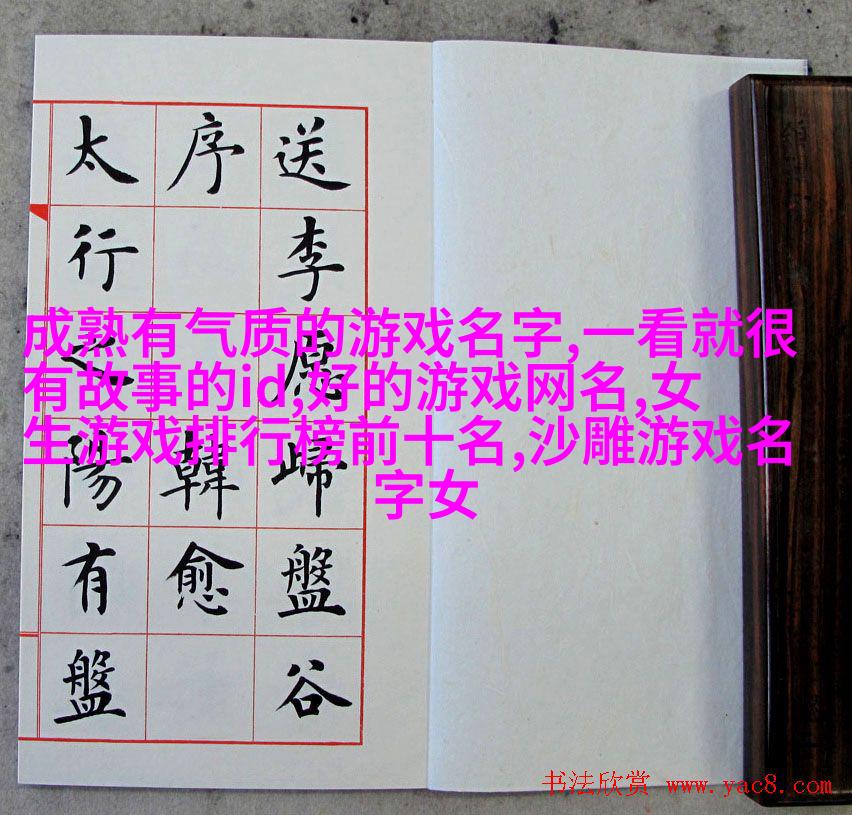 送李愿歸盤谷
序 韓愈
太行之陽有盤
成熟有气质的游戏名字,一看就很
有故事的id,好的游戏网名,女
生游戏排行榜前十名,沙雕游戏名
字女
书法欣赏 www.yac8.com